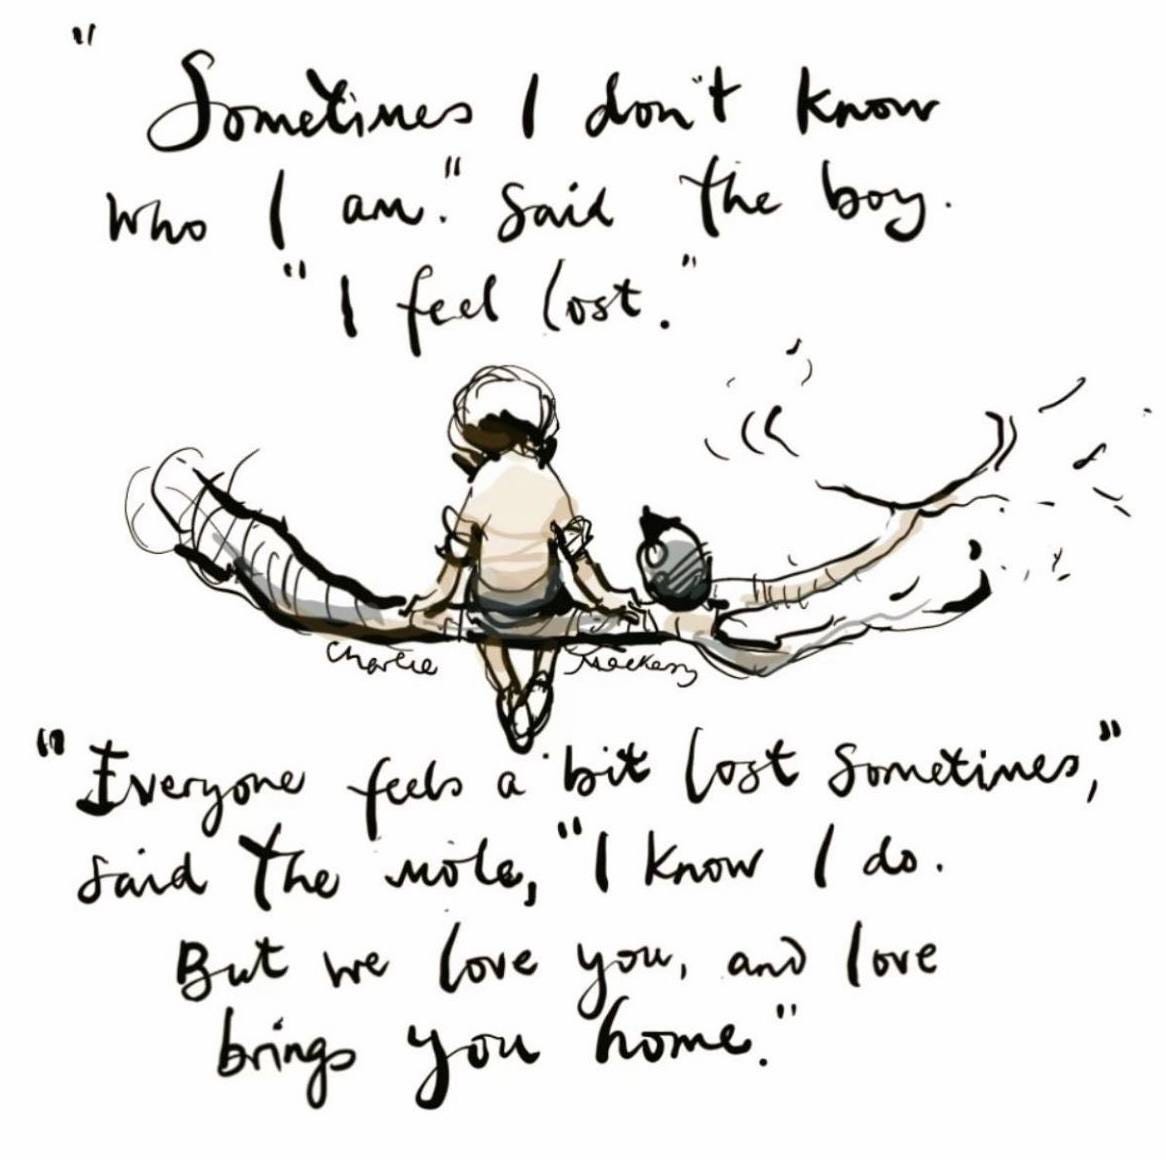 "Sometimes I don't know
who I am." said the boy.
"I feel lost."
Charlie Mackesy
"Everyone feels a bit lost sometimes,"
said the mole, "I know I do.
But we love you, and love
brings you home."